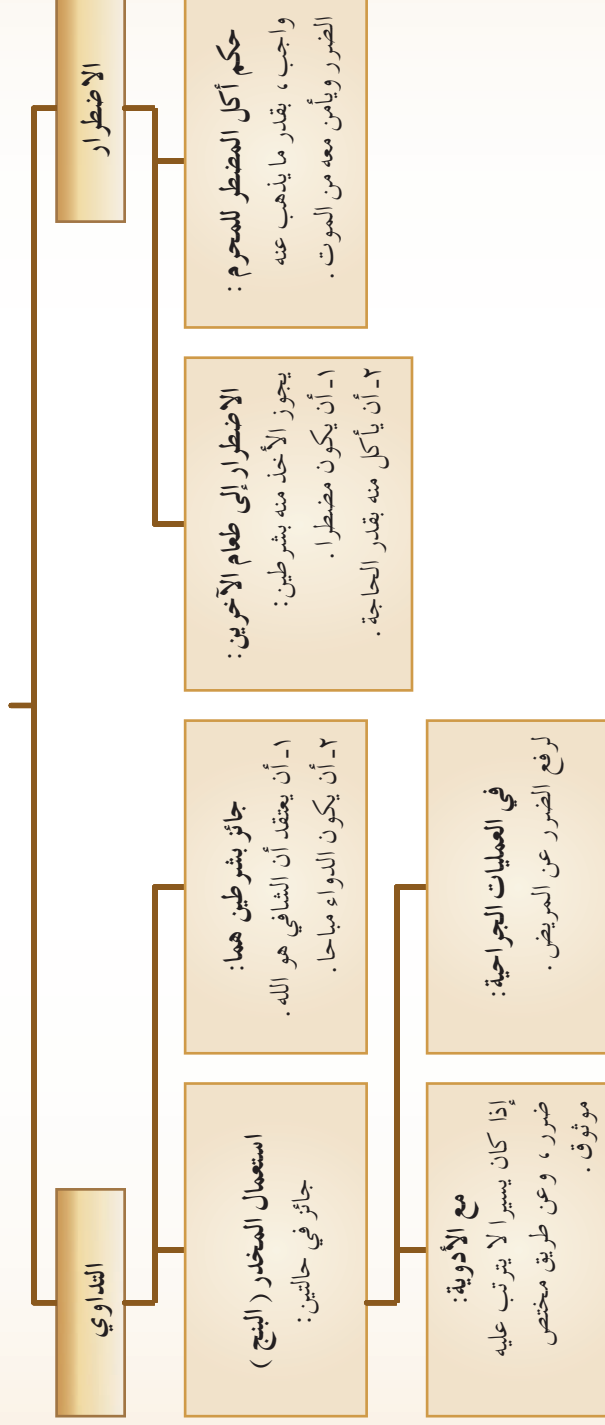 الاضطرار
حكم أكل المضطر للمحرم :
واجب ، بقدر ما يذهب عنه
الضرر ويأمن معه من الموت .
الاضطرار إلى طعام الآخرين :
يجوز الأخذ منه بشرطين :
١ـ أن يكون مضطرا .
٢ـ أن يأكل منه بقدر الحاجة .
التداوي
جائز بشرطين هما:
١ـ أن يعتقد أن الشافي هو الله .
٢ـ أن يكون الدواء مباحا .
استعمال المخدر ( البنج )
جائز في حالتين :
في العمليات الجراحية :
لرفع الضرر عن المريض .
مع الأدوية :
إذا كان يسيرا لا يترتب عليه
ضرر ، وعن طريق مختص
موثوق .